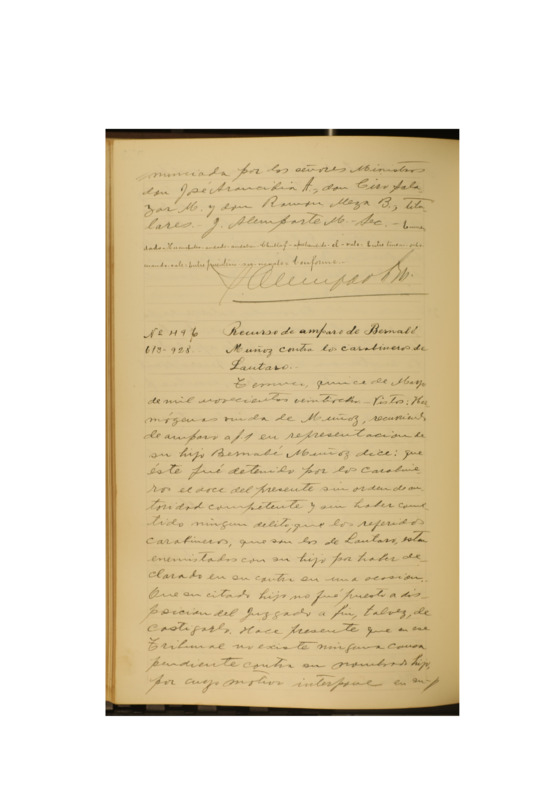 nunciada por los señores Ministros
don José Arancibia A., don Ciro Sala
zar M. y don Ramon Meza B., titu
lares. J. Alemparte M. Sec. -
Conforme
Alemparte M.
Recurso de amparo de Bernabé
Muñoz contra los carabineros de
Lautaro.-
Temuco, quince de Mayo
de mil novecientos veintiocho. Vistos: Her
mógenas viuda de Muñoz, recurriendo
de amparo a f 1 en representacion de
su hijo Bernabé Muñoz dice: que
éste fué detenido por los carabine
ros el doce del presente sin orden de au
toridad competente y sin haber come
tido ningun delito, que los referidos
carabineros, que son los de Lautaro, estan
enemistados con su hijo por haber de-
clarado en su contra en una ocasion.
Que su citado hijo no fué puesto a dis-
posicion del Juzgado a fin, talvez, de
castigarlo. Hace presente que en ese
Tribunal no existe ninguna causa
pendiente contra su nombrado hijo,
por cuyo motivo interpone en su